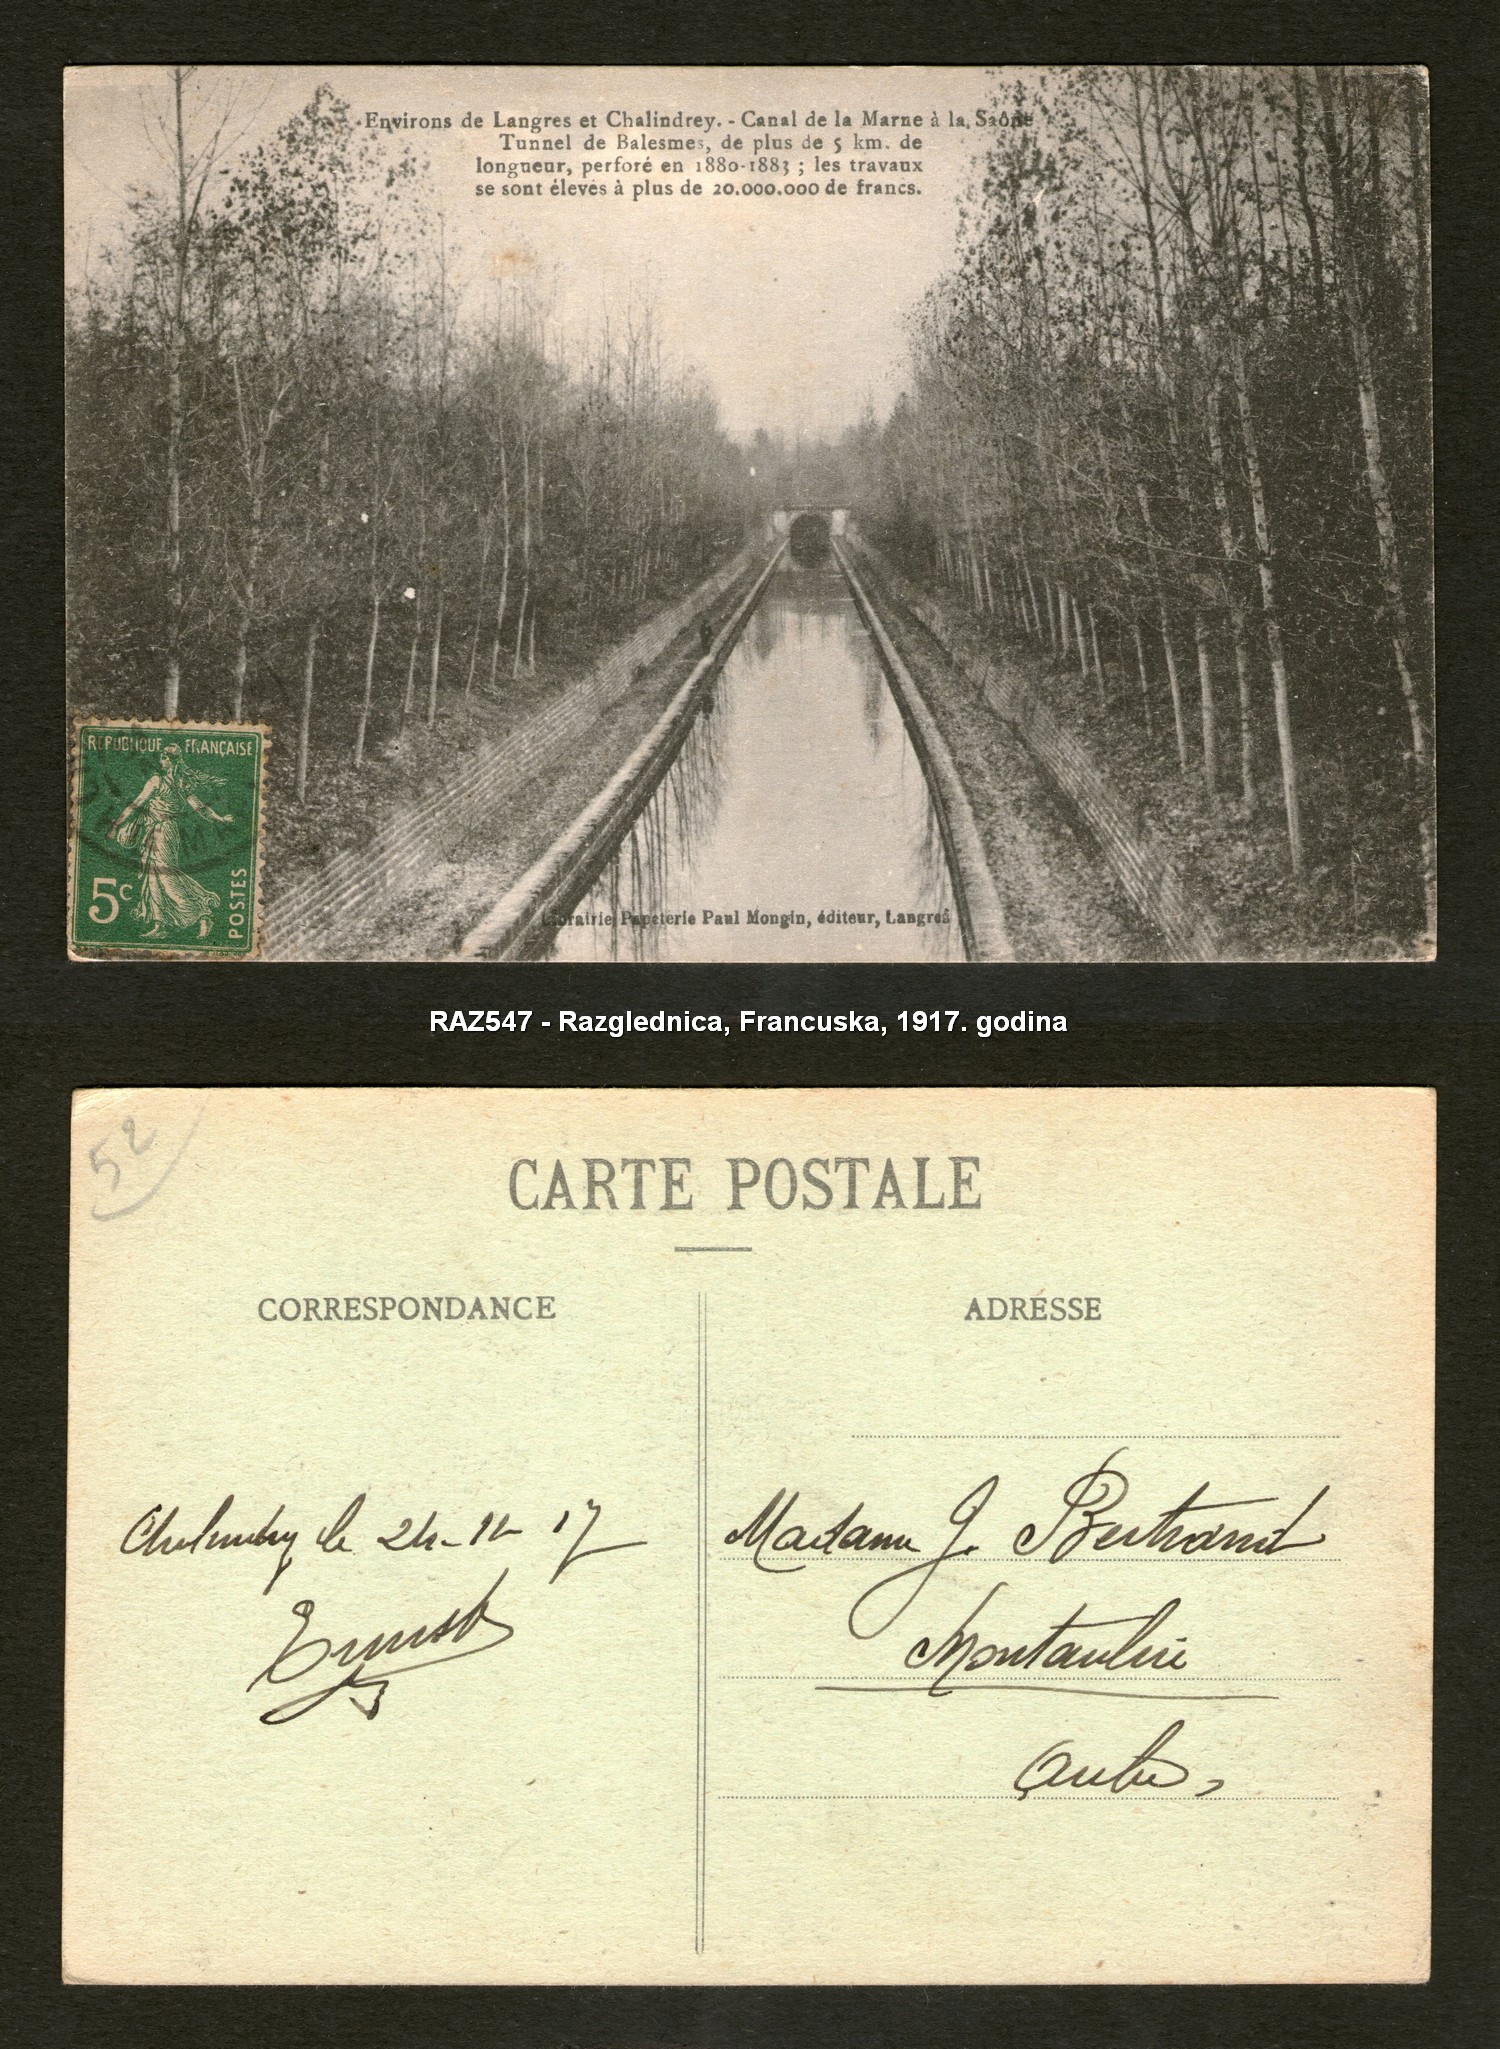 Environs de Langres et Chalindrey. - Canal de la Marne à la Saône
Tunnel de Balesmes, de plus de 5 km. de
longueur, perforé en 1880-1883 ; les travaux
se sont élevés à plus de 20.000.000 de francs.
REPUBLIQUE FRANÇAISE
5c
POSTES
Librairie Papeterie Paul Mongin, éditeur, Langres
RAZ547 - Razglednica, Francuska, 1917. godina
52
CARTE POSTALE
CORRESPONDANCE
ADRESSE
Chalindrey le 24-12 17
Ernest
Madame J. Bertrand
Montaulin
Aube,